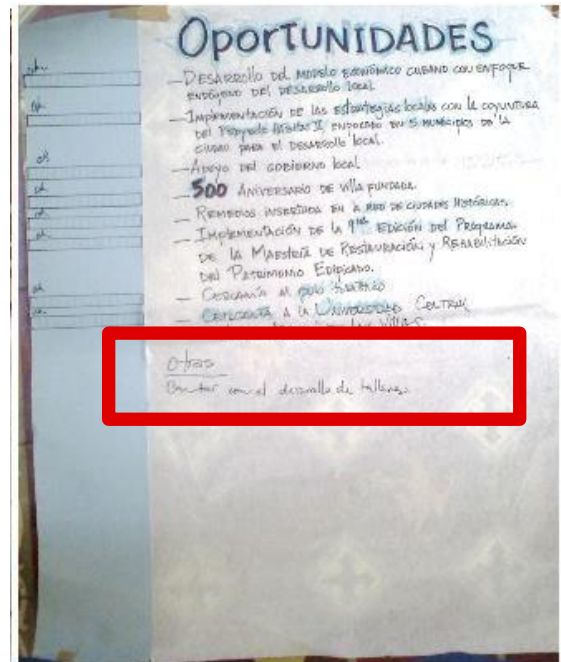 OPORTUNIDADES
— DESARROLLO DEL MODELO ECONÓMICO CUBANO CON ENFOQUE
ENDÓGENO DEL DESARROLLO LOCAL
— IMPLEMENTACIÓN DE LAS ESTRATEGIAS LOCALES CON LA COYUNTURA
DEL PROYECTO HÁBITAS II, ENFOCADO EN 5 MUNICIPIOS DE LA
CIUDAD PARA EL DESARROLLO LOCAL.
— APOYO DEL GOBIERNO LOCAL
— 500 ANIVERSARIO DE VILLA FUNDADA.
— REMEDIOS INSERTADA EN LA RED DE CIUDADES HISTÓRICAS.
— IMPLEMENTACIÓN DE LA 9na EDICIÓN DEL PROGRAMA
DE LA MAESTRÍA DE RESTAURACIÓN Y REHABILITACIÓN
DEL PATRIMONIO EDIFICADO.
— CERCANÍA AL POLO TURÍSTICO
— CERCANÍA A LA UNIVERSIDAD CENTRAL
LAS VILLAS.
Otras
Contar con el desarrollo de talleres.